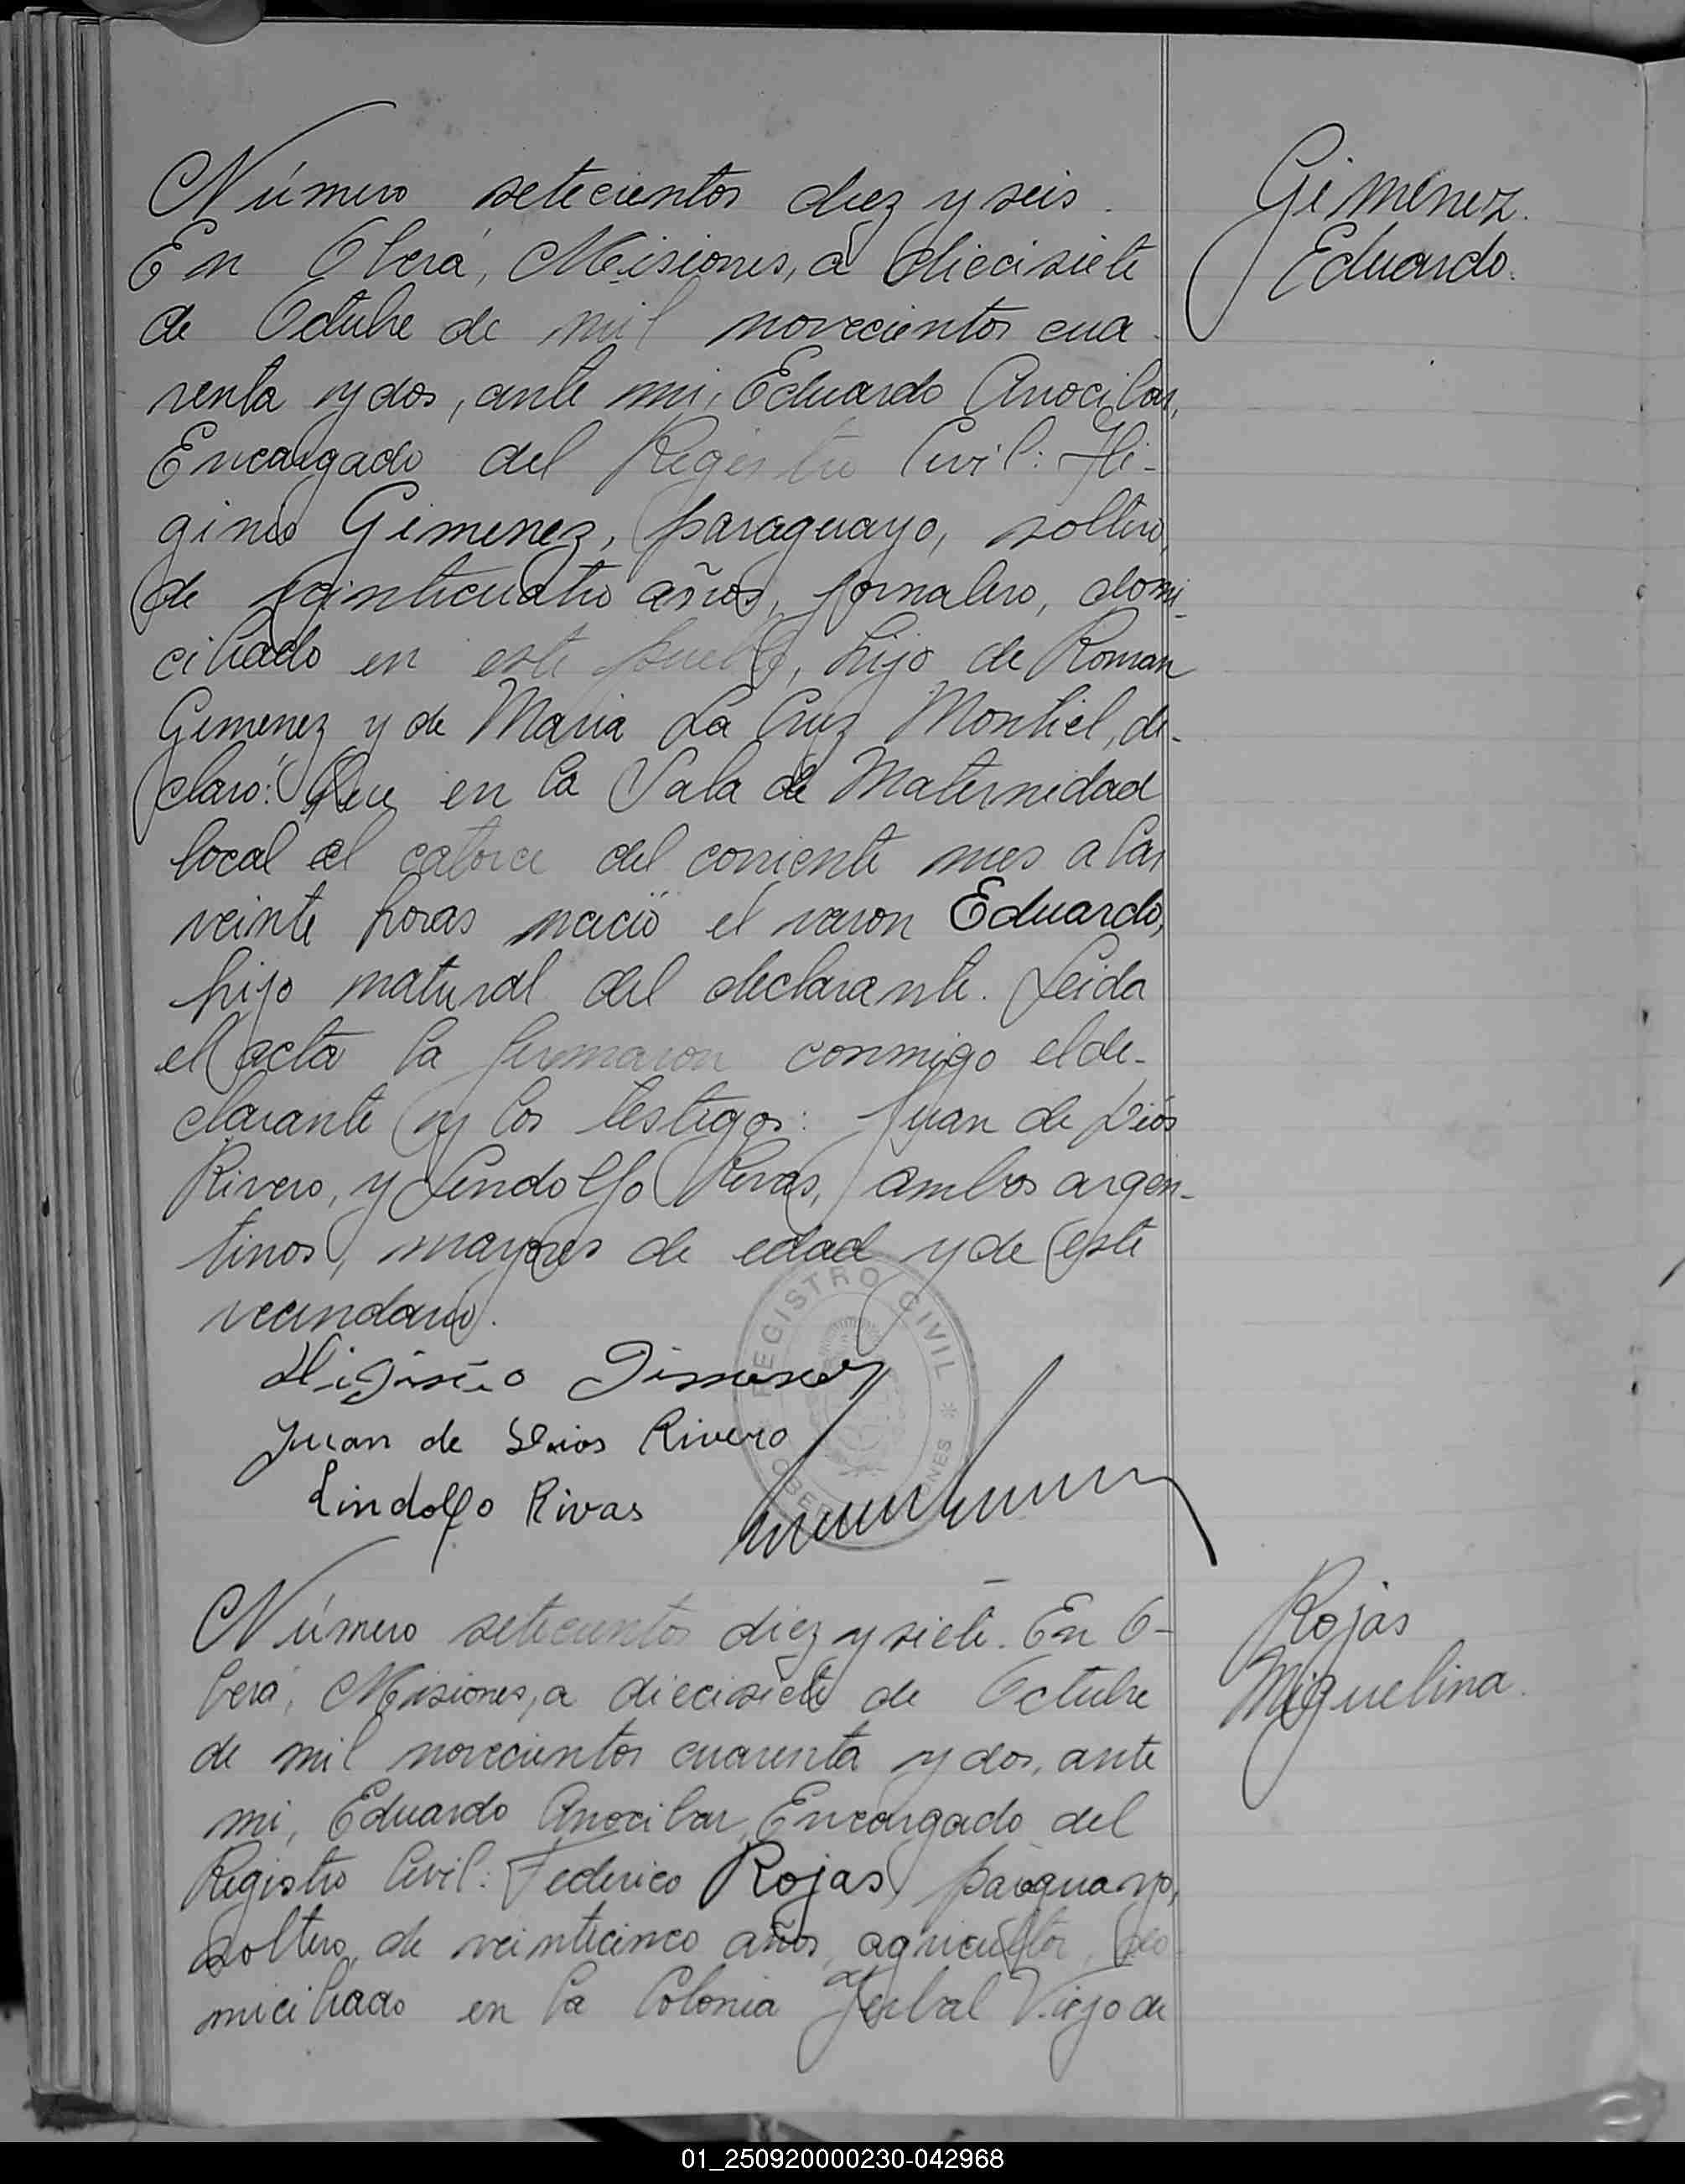 Número setecientos diez y seis.
Gimenez.
Eduardo.
En Oberá, Misiones, a diecisiete
de Octubre de mil novecientos cua-
renta y dos, ante mi, Eduardo Anocibar,
Encargado del Registro Civil: Hi-
ginio Gimenez, paraguayo, soltero,
de veinticuatro años, jornalero, domi-
ciliado en este pueblo, hijo de Roman
Gimenez y de Maria La Cruz Montiel, de-
claró: Que en la Sala de Maternidad
local el catorce del corriente mes a las
veinte horas nació el varon Eduardo,
hijo natural del declarante. Leida
el acta la firmaron conmigo el de-
clarante y los testigos: Juan de Dios
Rivero, y Lindolfo Rivas, ambos argen-
tinos, mayores de edad y de este
vecindario.
REGISTRO CIVIL
Higinio Gimenez
Juan de Dios Rivero
Lindolfo Rivas
Número setecientos diez y siete. En O-
Rojas
Miguelina.
berá, Misiones, a diecisiete de Octubre
de mil novecientos cuarenta y dos, ante
mi, Eduardo Anocibar, Encargado del
Registro Civil: Federico Rojas, paraguayo,
soltero, de veinticinco años, agricultor, do-
miciliado en la Colonia Yerbal Viejo de
01_250920000230-042968